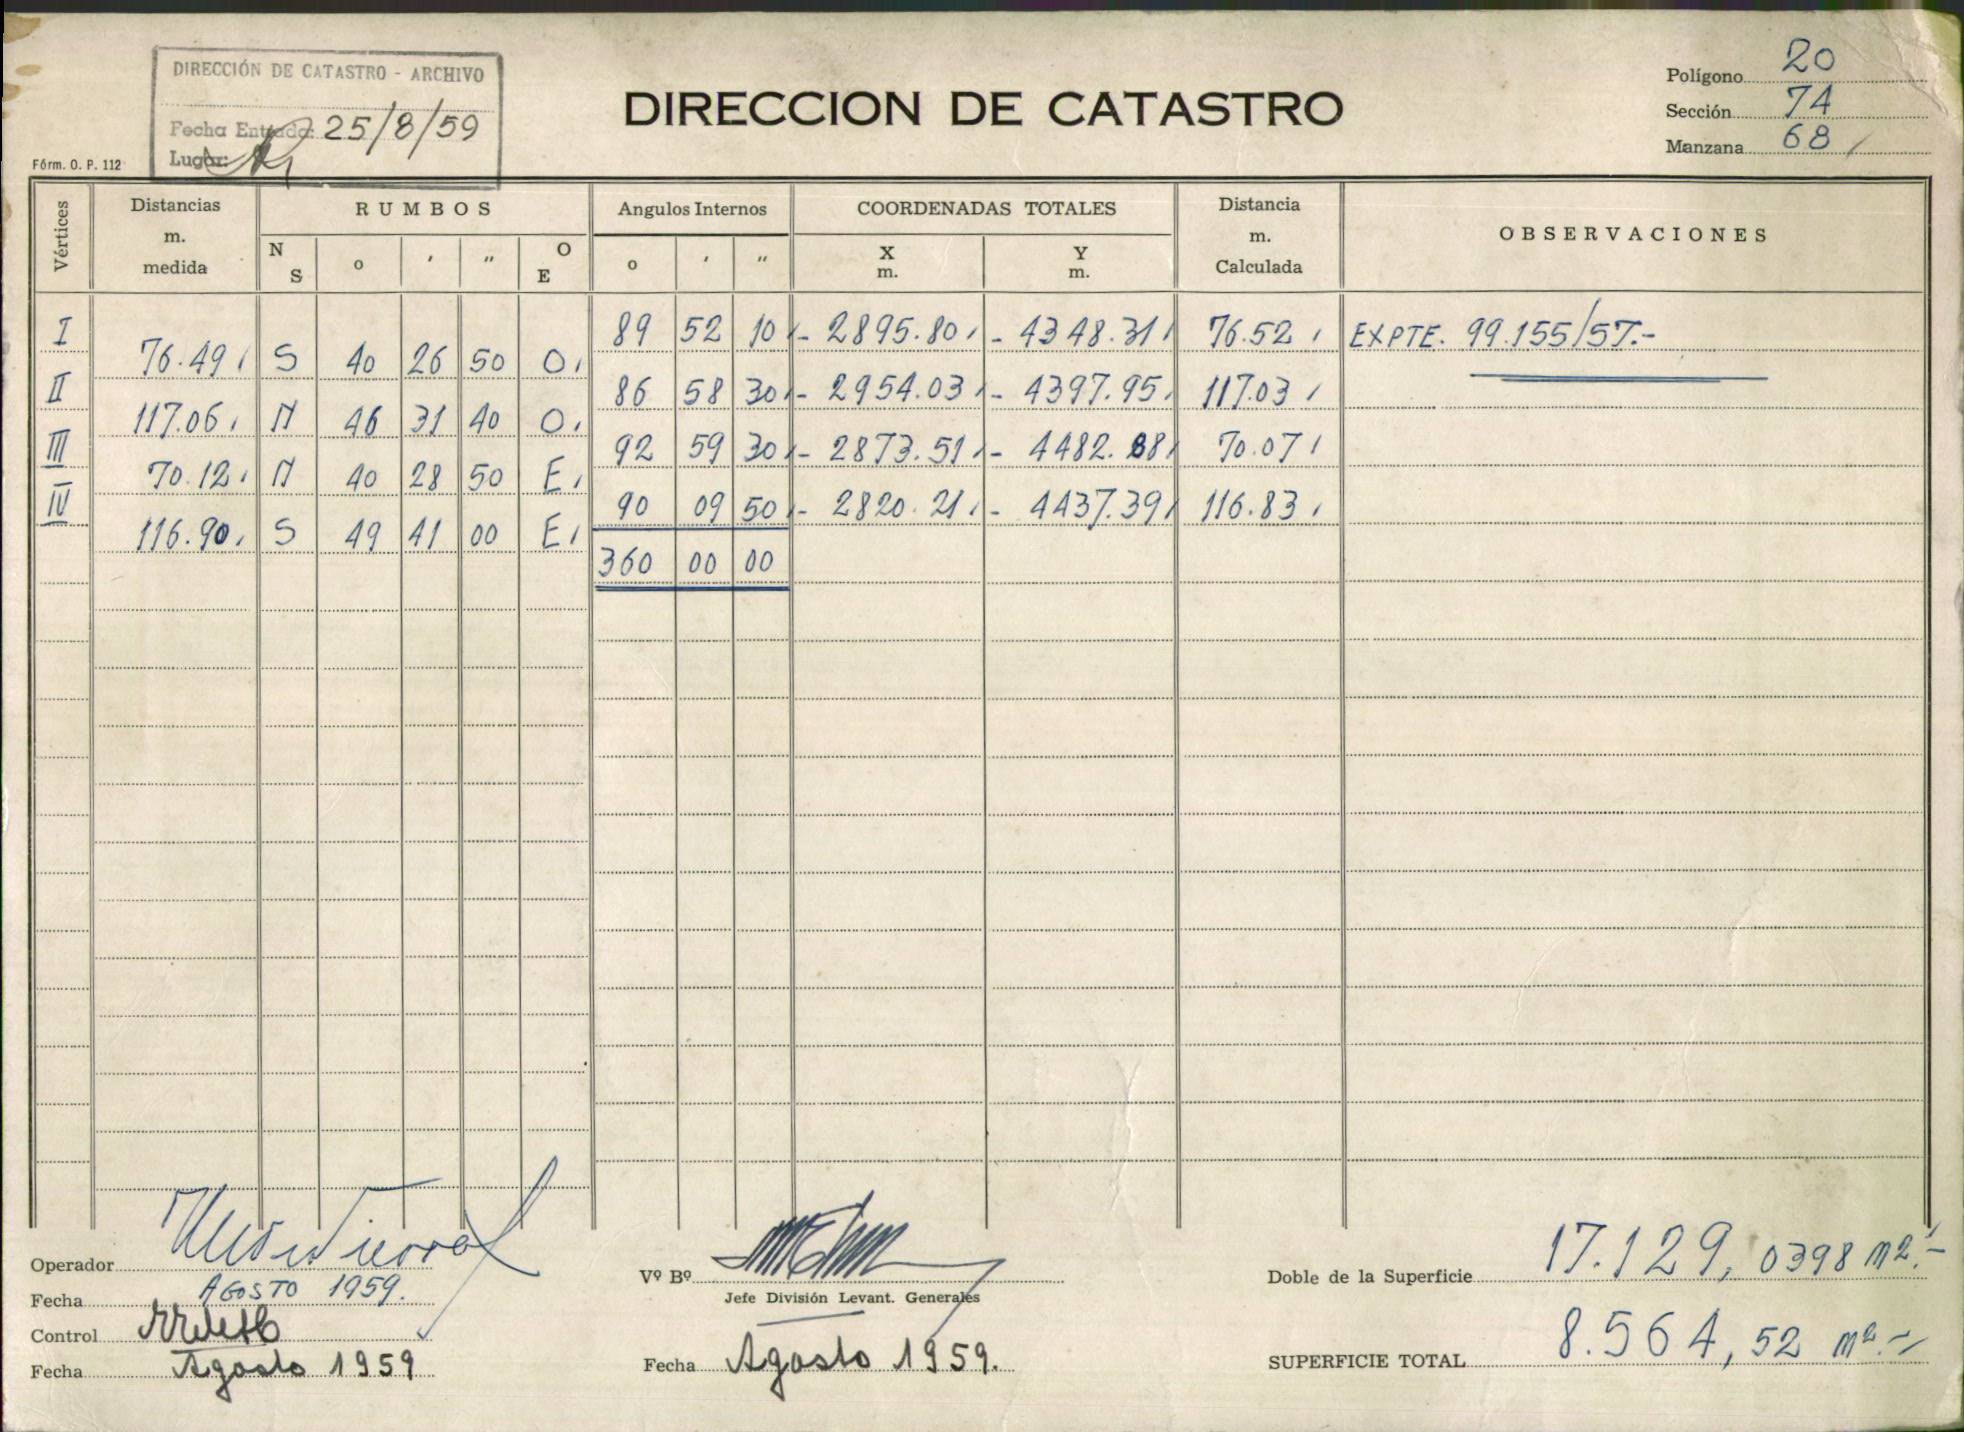 DIRECCIÓN DE CATASTRO - ARCHIVO
Fecha Entrada: 25/8/59
Lugar:
Fórm. O. P. 112
DIRECCION DE CATASTRO
Polígono 20
Sección 74
Manzana 68
Vértices
Distancias m. medida
RUMBOS
N S
o ′ ″
O E
Angulos Internos
o ′ ″
COORDENADAS TOTALES
X m.
Y m.
Distancia m. Calculada
OBSERVACIONES
I 89 52 10 - 2895.80 - 4348.31 76.52 EXPTE. 99.155/57.-
76.49 S 40 26 50 O
II 86 58 30 - 2954.03 - 4397.95 117.03
117.06 N 46 31 40 O
III 92 59 30 - 2873.51 - 4482.88 70.07
70.12 N 40 28 50 E
IV 90 09 50 - 2820.21 - 4437.39 116.83
116.90 S 49 41 00 E
360 00 00
Operador
Fecha AGOSTO 1959.
Control
Fecha Agosto 1959
Vº Bº
Jefe División Levant. Generales
Fecha Agosto 1959.
Doble de la Superficie 17.129,0398 m2.-
SUPERFICIE TOTAL 8.564,52 m2.-